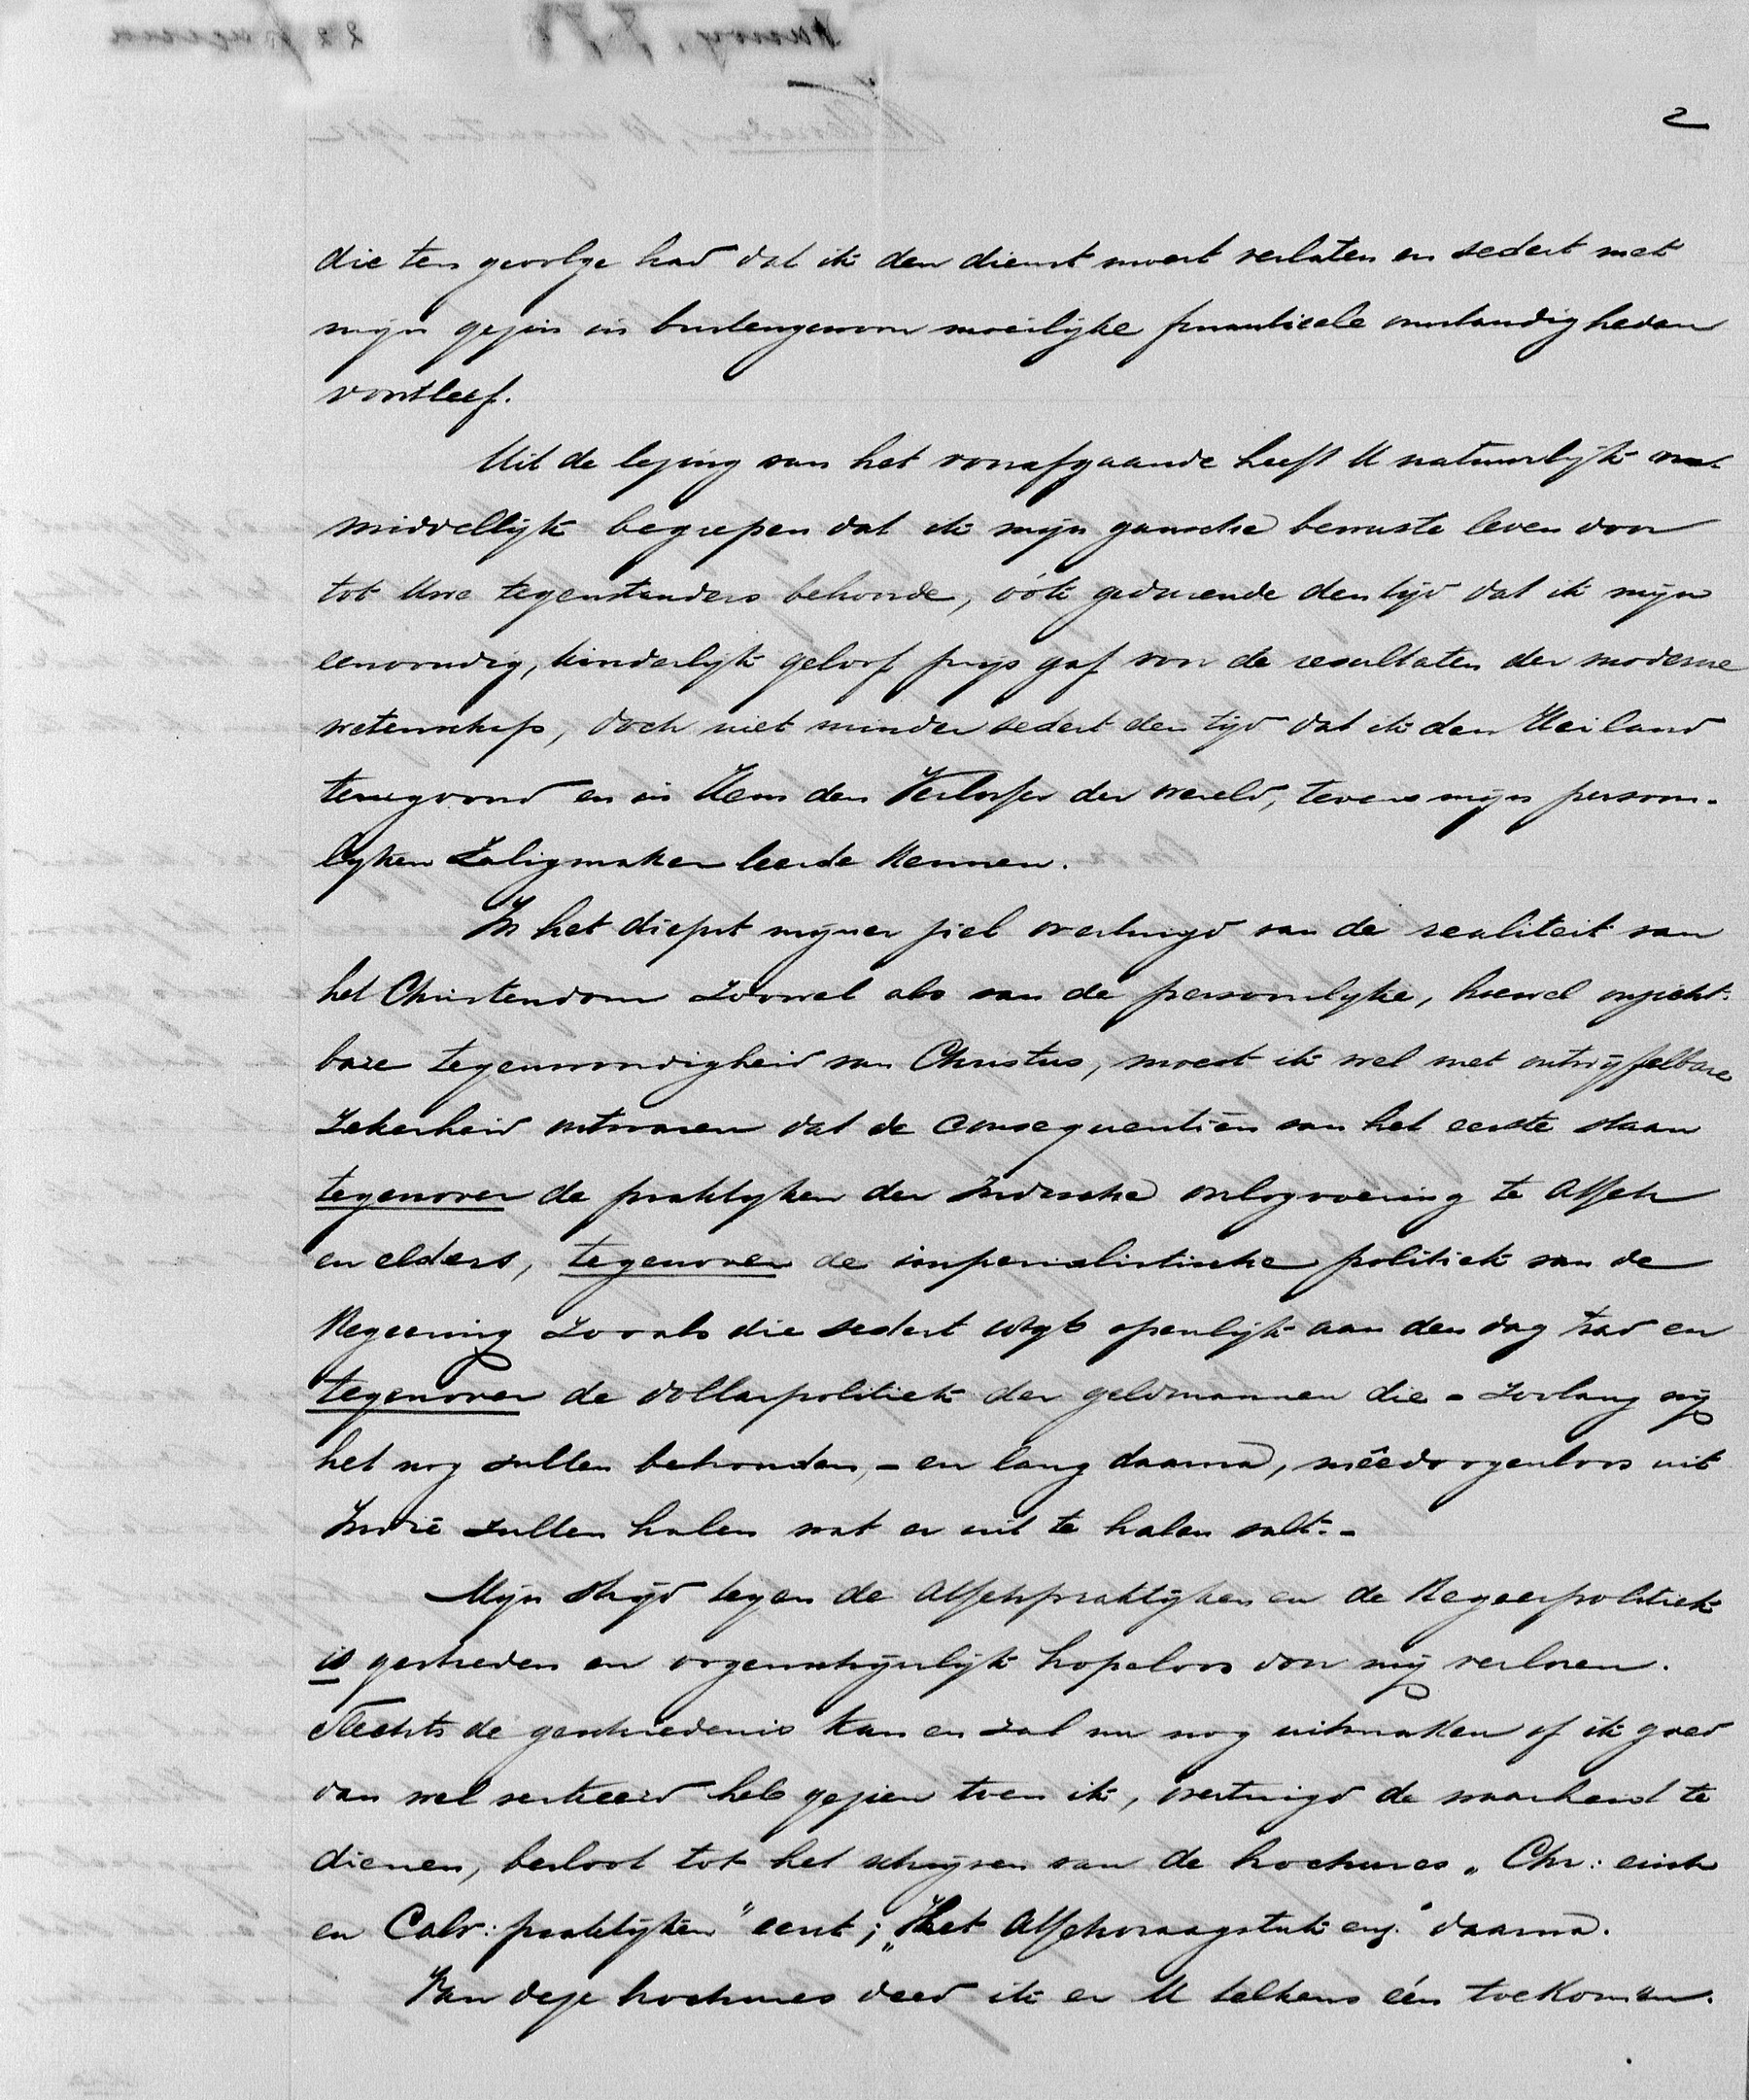 2
die ten gevolge had dat ik den dienst moest verlaten en sedert met
mijn gezin in buitengewoon moeilijke finantieele omstandigheden
voortleef.
Uit de lezing van het voorafgaande heeft U natuurlijk on-
middellijk begrepen dat ik mijn gansche bewuste leven door
tot Uwe tegenstanders behoorde, óók gedurende den tijd dat ik mijn
eenvoudig, kinderlijk geloof prijs gaf voor de resultaten der moderne
wetenschap, doch niet minder sedert den tijd dat ik den Heiland
terugvond en in Hem den Verlosser der wereld, tevens mijn persoon-
lijken Zaligmaker leerde kennen.
In het diepst mijner ziel overtuigd van de realiteit van
het Christendom zoowel als van de persoonlijke, hoewel onzicht-
bare tegenwoordigheid van Christus, moest ik wel met ontwijfelbare
zekerheid ontwaren dat de consequentiën van het eerste staan
tegenover de praktijken der Indische oorlogvoering te Atjeh
en elders, tegenover de imperialistische politiek van de
Regeering zooals die sedert openlijk aan den dag trad en
tegenover de dollarpolitiek der geldmannen die - zoolang wij
het nog zullen behouden, - en lang daarna, mêedoogenloos uit
Indië zullen halen wat er uit te halen valt. -
Mijn strijd tegen de Atjehpraktijken en de Regeerpolitiek
is gestreden en oogenschijnlijk hopeloos door mij verloren.
Slechts de geschiedenis kan en zal nu nog uitmaken of ik goed
dan wel verkeerd heb gezien toen ik, overtuigd de waarheid te
dienen, besloot tot het schrijven van de brochures „Chr: eisch
en Calv: praktijken" eerst; „Het Atjehvraagstuk enz." daarna.
Van deze brochures deed ik er U telkens één toekomen.